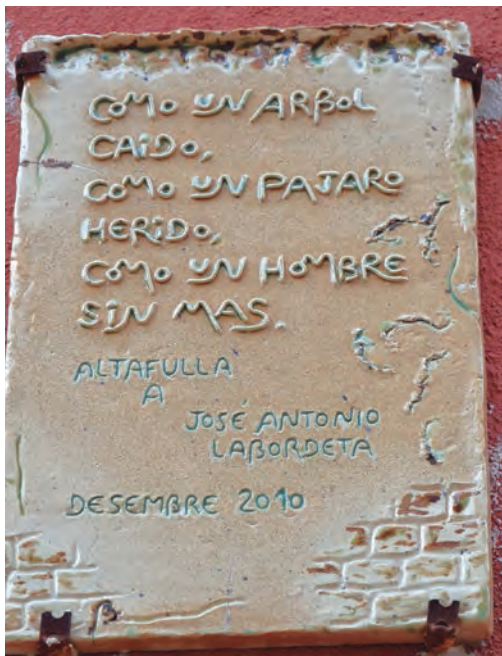 COMO UN ARBOL
CAIDO,
COMO UN PAJARO
HERIDO,
COMO UN HOMBRE
SIN MAS.
ALTAFULLA
A
JOSÉ ANTONIO
LABORDETA
DESEMBRE 2010